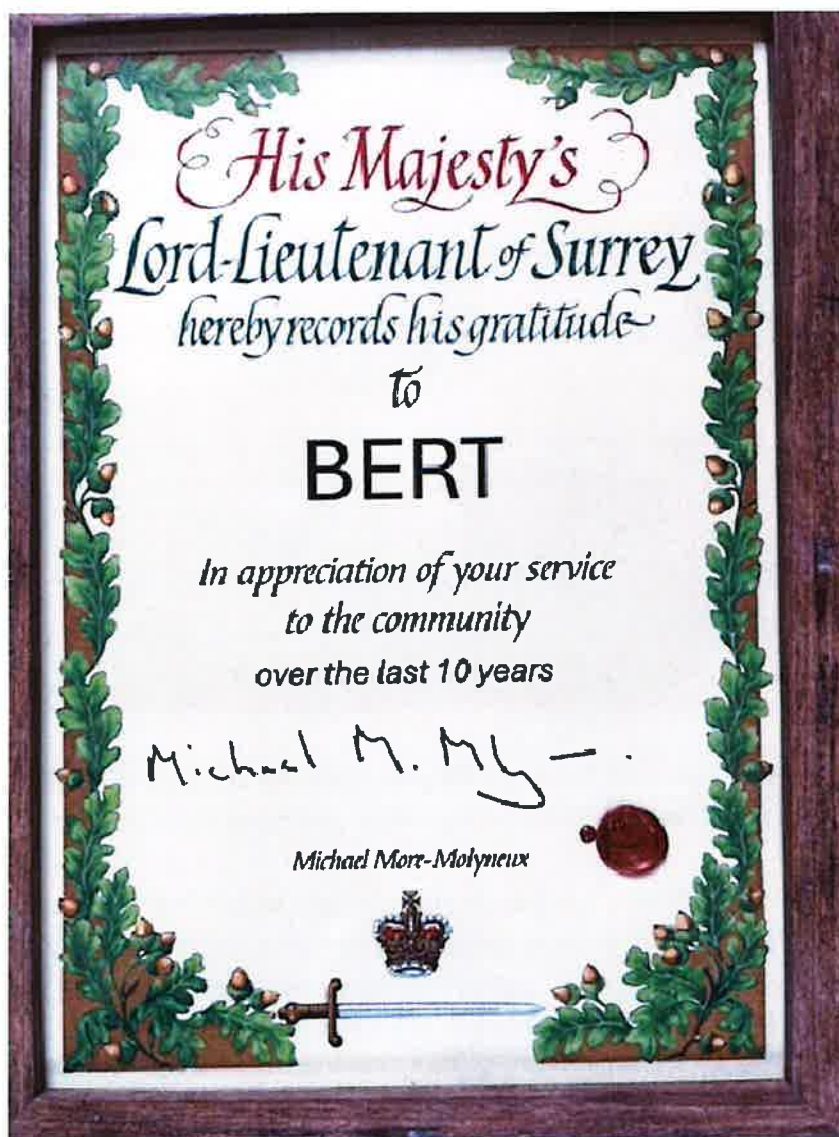 His Majesty's
Lord-Lieutenant of Surrey
hereby records his gratitude
to
BERT
In appreciation of your service
to the community
over the last 10 years
Michael M. M
Michael More-Molyneux